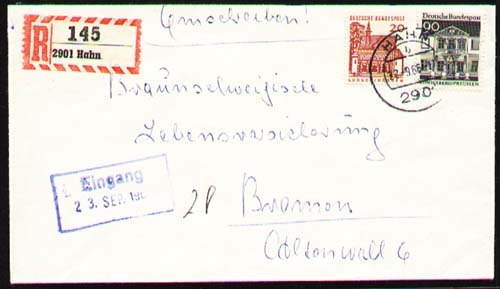 Einschreiben!
R 145
2901 Hahn
DEUTSCHE BUNDESPOST
20
Deutsche Bundespost
HAHN
290
Braunschweigische
Lebensversicherung
Eingang
23. SEP. 196
28 Bremen
Altenwall 6